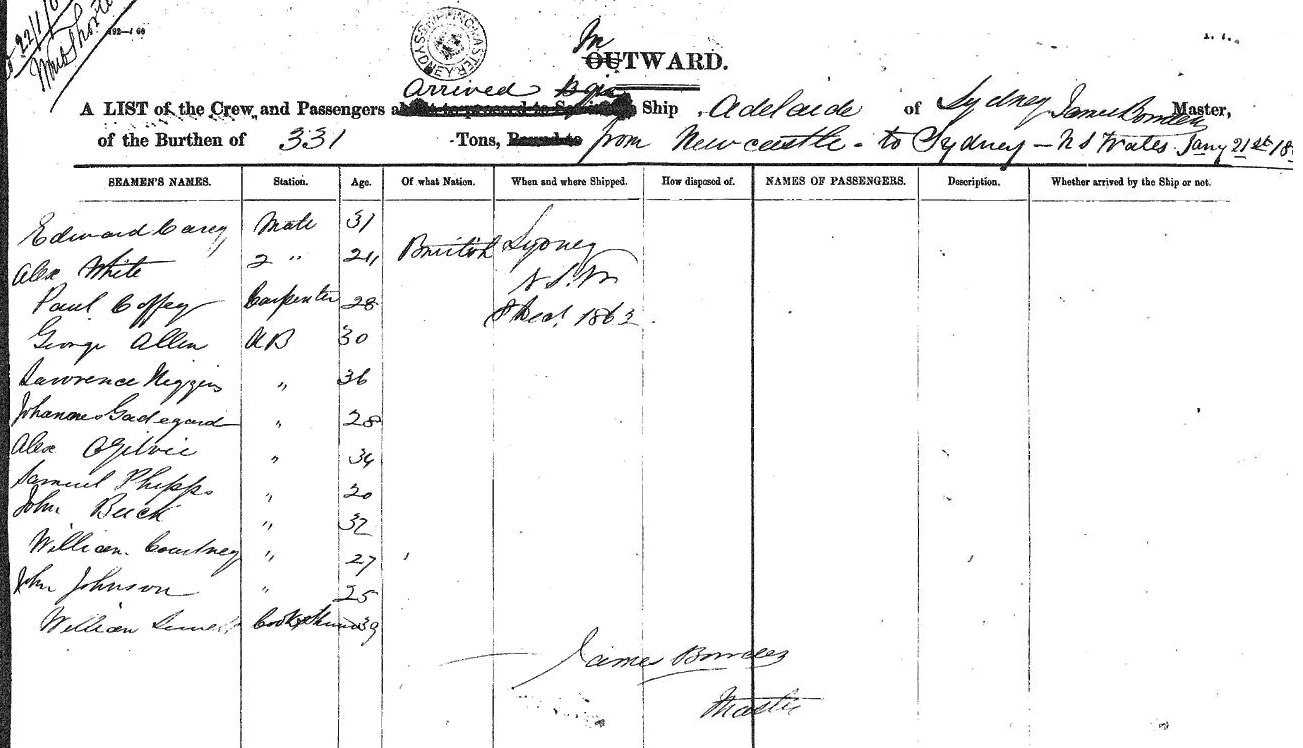 22/1/6
192—160
In
OUTWARD.
arrived
A LIST of the Crew and Passengers about to proceed to Ship Adelaide of Sydney James Bowden Master,
of the Burthen of 331 -Tons, Bound to from Newcastle - to Sydney - N S Wales Jany 21st 18
SEAMEN'S NAMES. Station. Age. Of what Nation. When and where Shipped. How disposed of. NAMES OF PASSENGERS. Description. Whether arrived by the Ship or not.
Edward Carey Mate 31
Alex White 2 " 24 British Sydney
N S. W
Paul Coffey Carpenter 28 8 Dec. 1863
George Allen AB 30
Lawrence Higgins " 36
Johannes Gadegard " 28
Alex Ogilvie " 34
Samuel Phipps " 20
John Buck " 32
William Courtney " 27
John Johnson " 25
William Cook & 39
James Bowden
Master